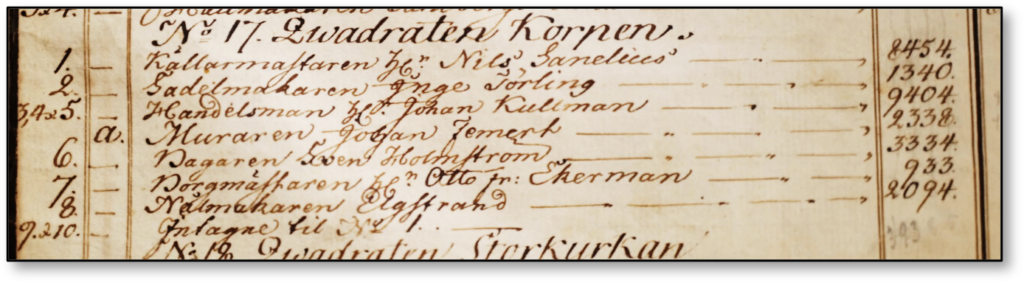 3 & 4.
N:o 17. Qwadraten Korpen.
1. — Källarmästaren H:n Nils Sanelius — „ — „ 8454.
2. — Sadelmakaren Inge Törling — „ — „ 1340.
3, 4 & 5. — Handelsman H:r Johan Kullman — „ — „ 9404.
a. Muraren Johan Zemert — „ — „ 2338.
6. — Bagaren Sven Holmström — „ — „ 3334.
7. — Borgmästaren H:n Otto fr: Ekerman — „ — „ 933.
8. — Nålmakaren Elgstrand — „ — „ 2094.
9. & 10. — Intagne til N:o 1. —
N:o 18. Qwadraten Storkyrkan